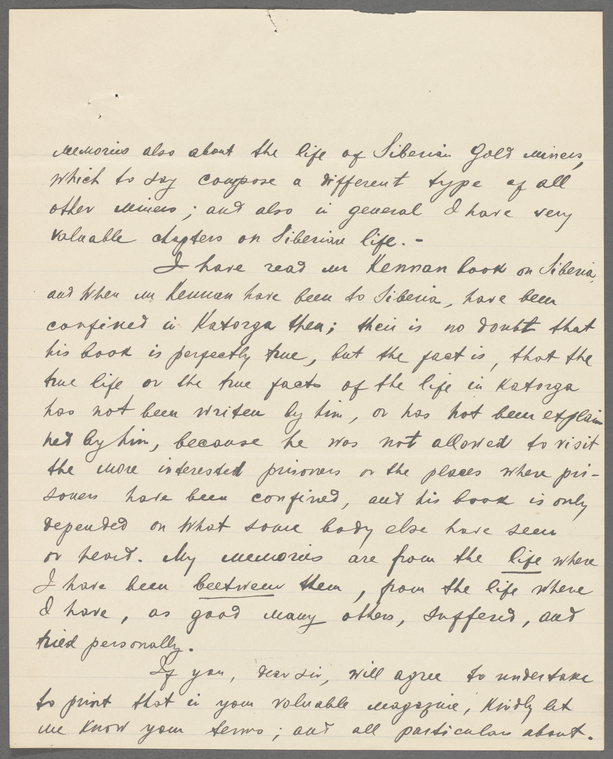 Memories also about the life of Siberian Gold Miners,
which to say compose a different type of all
other miners; and also in general I have very
valuable chapters on Siberian life. -
I have read Mr Kennan book on Siberia,
and when Mr Kennan have been to Siberia, have been
confined in Katorga then; their is no doubt that
his book is perfectly true, but the fact is, that the
true life or the true facts of the life in Katorga
has not been writen by him, or has not been explain
ned by him, because he was not allowed to visit
the more interested prisoners or the places where pri-
soners have been confined, and his book is only
depended on what some body else have seen
or heard. My memories are from the life where
I have been beetween them, from the life where
I have, as good many others, suffered, and
tried personally.
If you, dear Sir, will agree to undertake
to print that in your valuable magazine, kindly let
me know your terms; and all particulars about.